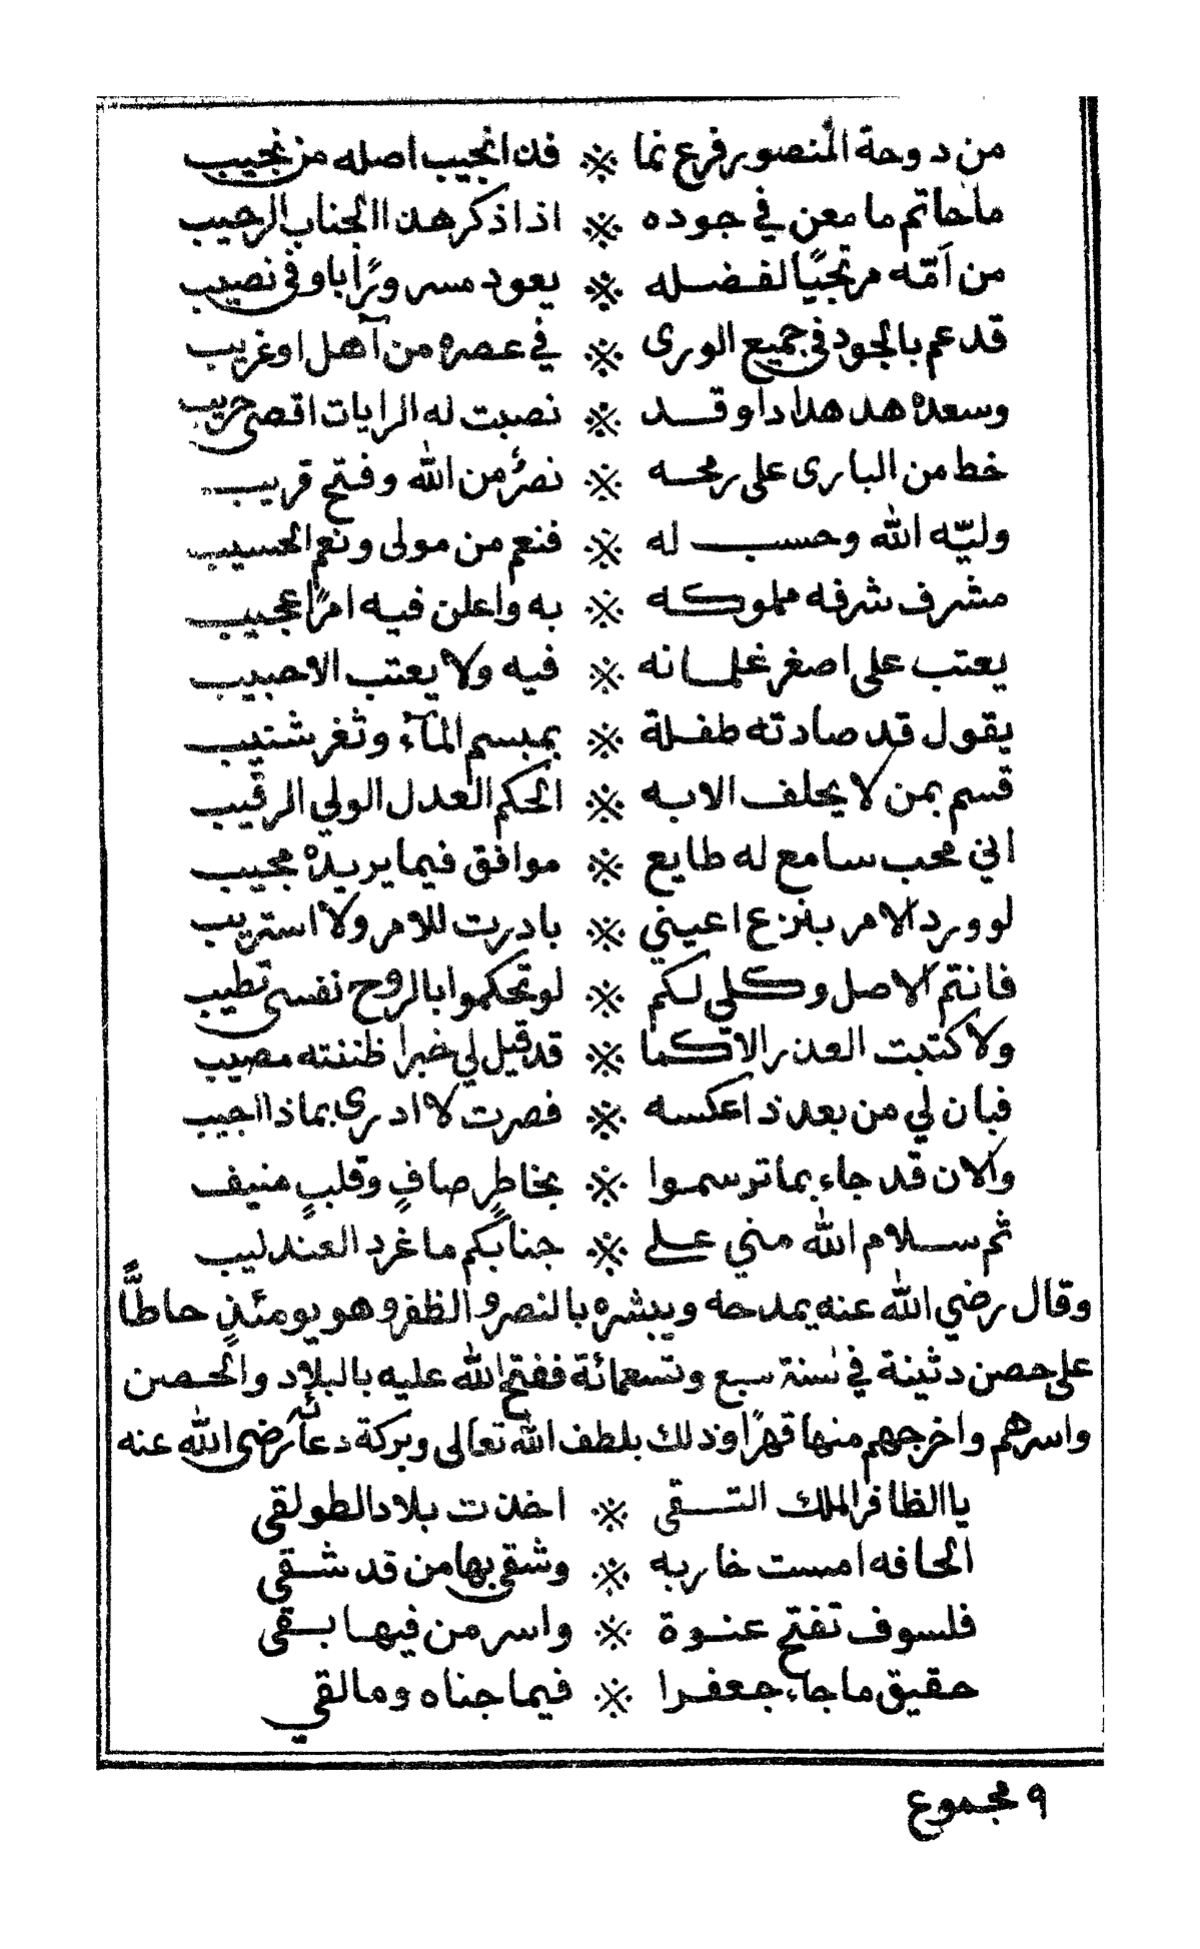 من دوحة المنصور فرع نما ※ فذا نجيب اصله من نجيب
ما حاتم ما معن في جوده ※ اذا ذكر هذا الجناب الرحيب
من اَمّه مرتجيًا لفضله ※ يعود مسرورًا باوفى نصيب
قد عم بالجود في جميع الورى ※ في عصره من آهل او غريب
وسعده هد هدادا وقد ※ نصبت له الرايات اقصى حريب
خط من البارى على رمحه ※ نصرٌ من الله وفتح قريب
وليّه الله وحسب له ※ فنعم من مولى ونعم الحسيب
مشرف شرفه مملوكه ※ به واعلن فيه امرًا عجيب
يعتب على اصغر غلمانه ※ فيه ولا يعتب الا حبيب
يقول قد صادته طفلة ※ بمبسم المآء وثغر شنيب
قسم بمن لا يحلف الا به ※ الحكم العدل الولي الرقيب
اني محب سامع له طايع ※ موافق فيما يريده مجيب
لو ورد الامر بنزع اعيني ※ بادرت للامر ولا استريب
فانتم الاصل وكلي لكم ※ لو تحكموا بالروح نفسى تطيب
ولا كتبت العذر الا كما ※ قد قيل لي خبرا ظننته مصيب
فبان لي من بعد ذا عكسه ※ فصرت لا ادرى بماذا اجيب
والان قد جاء بما ترسموا ※ بخاطرٍ صافٍ وقلبٍ منيف
ثم سلام الله مني على ※ جنابكم ما غرد العندليب
وقال رضي الله عنه يمدحه ويبشره بالنصر والظفر وهو يومئذٍ حاطًّا
على حصن دثينة في سنة سبع وتسعمائة ففتح الله عليه بالبلاد والحصن
واسرهم واخرجهم منها قهرًا وذلك بلطف الله تعالى وبركة دعائه رضى الله عنه
يا الظافر الملك التقى ※ اخذت بلاد الطولقي
الحافه امست خاربه ※ وشقي بها من قد شقي
فلسوف تفتح عنوة ※ واسر من فيها بقى
حقيق ما جاء جعفرا ※ فيما جناه وما لقي
٩ مجموع